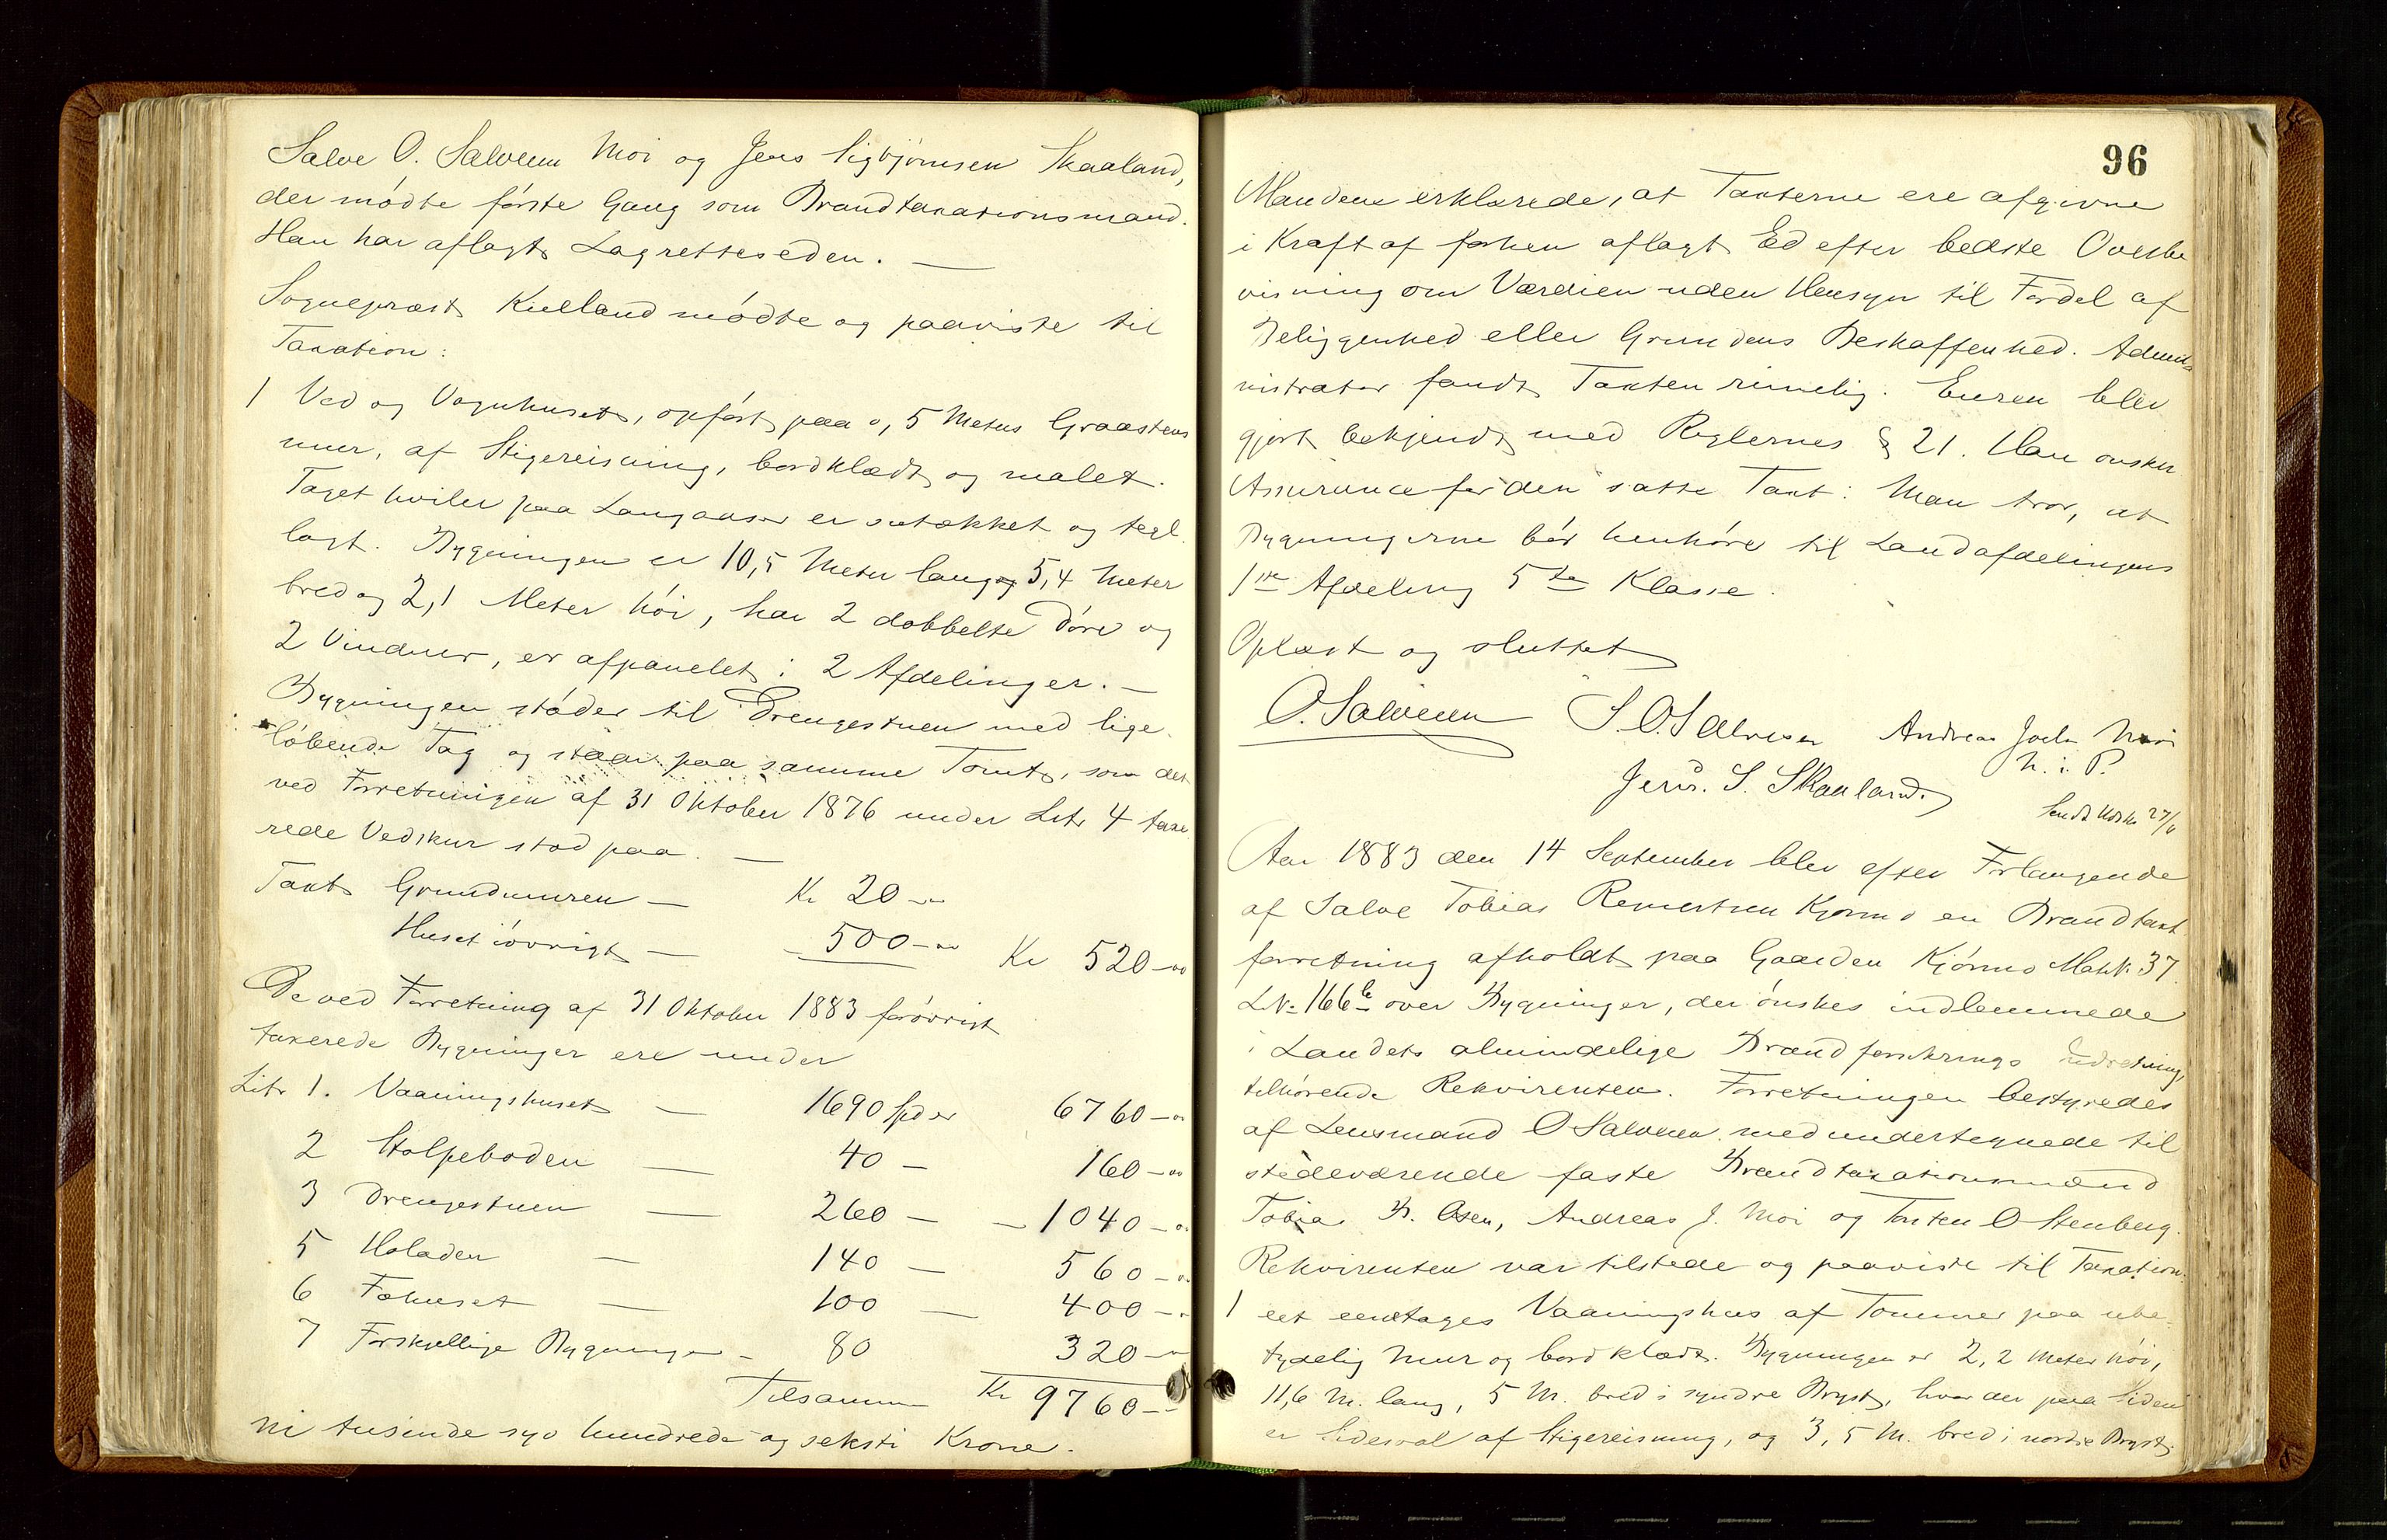 Salve O. Salvesen Moi og Jens Sigbjørnsen Skaaland,
der mødte første Gang som Brandtaxationsmand.
Han har aflagt Lagretteseden. —
Sogneprest Kielland mødte og paaviste til
Taxation:
1 Ved og Vognhuset, opført paa 0,5 Meters Graastens
mur, af Stigereisning, bordklædt og malet.
Taget hviler paa Langaaser er sutækket og tegl
lagt. Bygningen er 10,5 Meter lang og 5,4 Meter
bred og 2,1 Meter høi, har 2 dobbelte Døre og
2 Vinduer, er afpanelet i 2 Afdelinger. —
Bygningen støder til Drengestuen med lige
løbende Tag og staar paa samme Tomt, som det
ved Forretningen af 31 Oktober 1876 under Litr 4 taxe
rede Vedskur stod paa. —
Taxt Grundmuren — Kr 20-00
Huset iøvrigt — - 500-00 Kr 520-00
De ved Forretning af 31 Oktober 1883 forøvrigt
taxerede Bygninger ere under
Litr 1. Vaaningshuset — 1690 Spd er 6760-00
2 Stolpeboden — 40 — 160-00
3 Drengestuen — 260 — - 1040-00
5 Høladen — 140 — 560-00
6 Fæhuset — 100 — 400-00
7 Forskjellige Bygninger - 80 320-00
Tilsammen Kr 9760-00
ni tusinde syv hundrede og seksti Krone.
96
Mændene erklærede, at Taxterne ere afgivne
i Kraft af forhen aflagt Ed efter bedste Overbe
visning om Værdien uden Hensyn til Fordel af
Beliggenhed eller Grundens Beskaffenhed. Admi
nistrator fandt Taxten rimelig. Eieren blev
gjort bekjendt med Reglernes § 21. Han ønsker
Assurance for den satte Taxt. Man tror, at
Bygningerne bør henhøre til Landafdelingens
1ste Afdeling 5te Klasse.
Oplæst og sluttet
O. Salvesen S. O. Salvesen Andreas Joels Moi
Jens. S. Skaaland. m. i. P.
Sendt
Aar 1883 den 14 September blev efter Forlangende
af Salve Tobias Reinertsen Kjørmo en Brandtaxt
forretning afholdt paa Gaarden Kjørmo Matr. 37
LN: 166b over Bygninger, der ønskes indlemmede
i Landets almindelige Brandforsikrings Indretning,
tilhørende Rekvirenten. Forretningen bestyredes
af Lensmand O Salvesen med undertegnede til
stedeværende faste Brandtaxationsmænd
Tobias B. Osen, Andreas J. Moi og Torsten O Stenberg.
Rekvirenten var tilstede og paaviste til Taxation:
1 eet eenetages Vaaningshus af Tømmer paa ube
tydelig Mur og bordklædt. Bygningen er 2,2 Meter høi,
11,6 M. lang, 5 M. bred i syndre Bryst, hvor der paa Siden
er Sidesval af Stigereisning, og 3,5 M. bred i nordre Bryst,